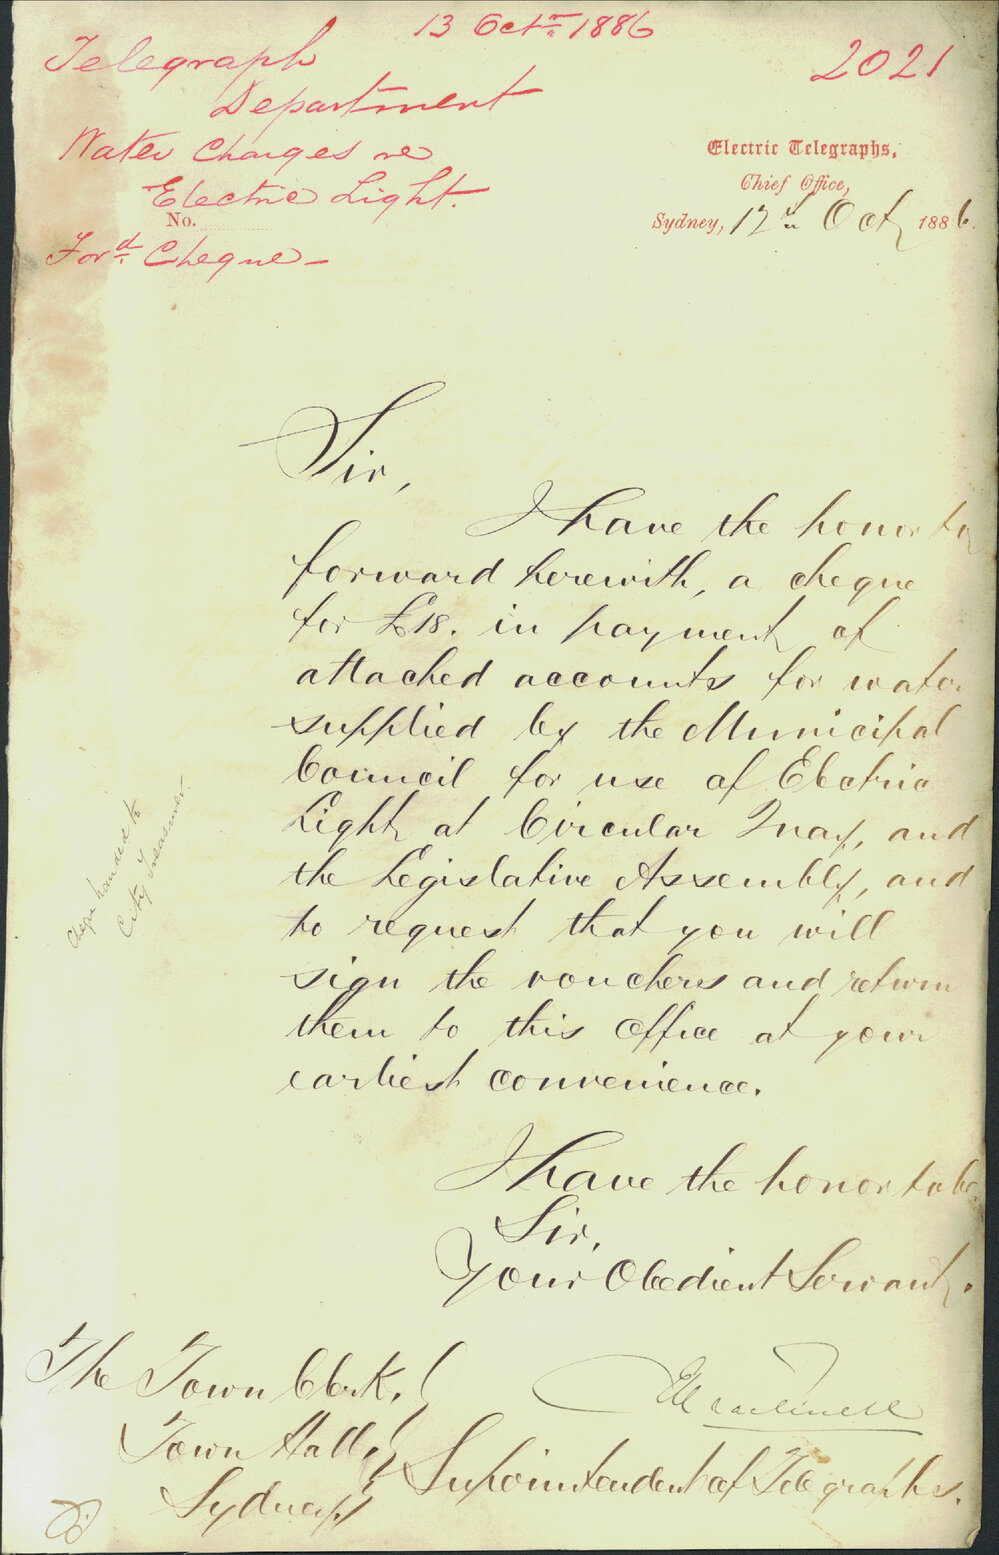 13 Octr. 1886
Telegraph
Department
Water Charges re
Electric Light.
No.
Ford. Cheque -
2021
Electric Telegraphs,
Chief Office,
Sydney, 12th Oct 1886.
Sir,
I have the honor to
forward herewith, a cheque
for £18. in payment of
attached accounts for water
supplied by the Municipal
Council for use of Electric
Light at Circular Quay, and
the Legislative Assembly, and
to request that you will
sign the vouchers and return
them to this office at your
earliest convenience.
I have the honor to be
Sir,
Your Obedient Servant.
Superintendent of Telegraphs.
The Town Clerk,
Town Hall,
Sydney
Cheque handed to
City Treasurer.